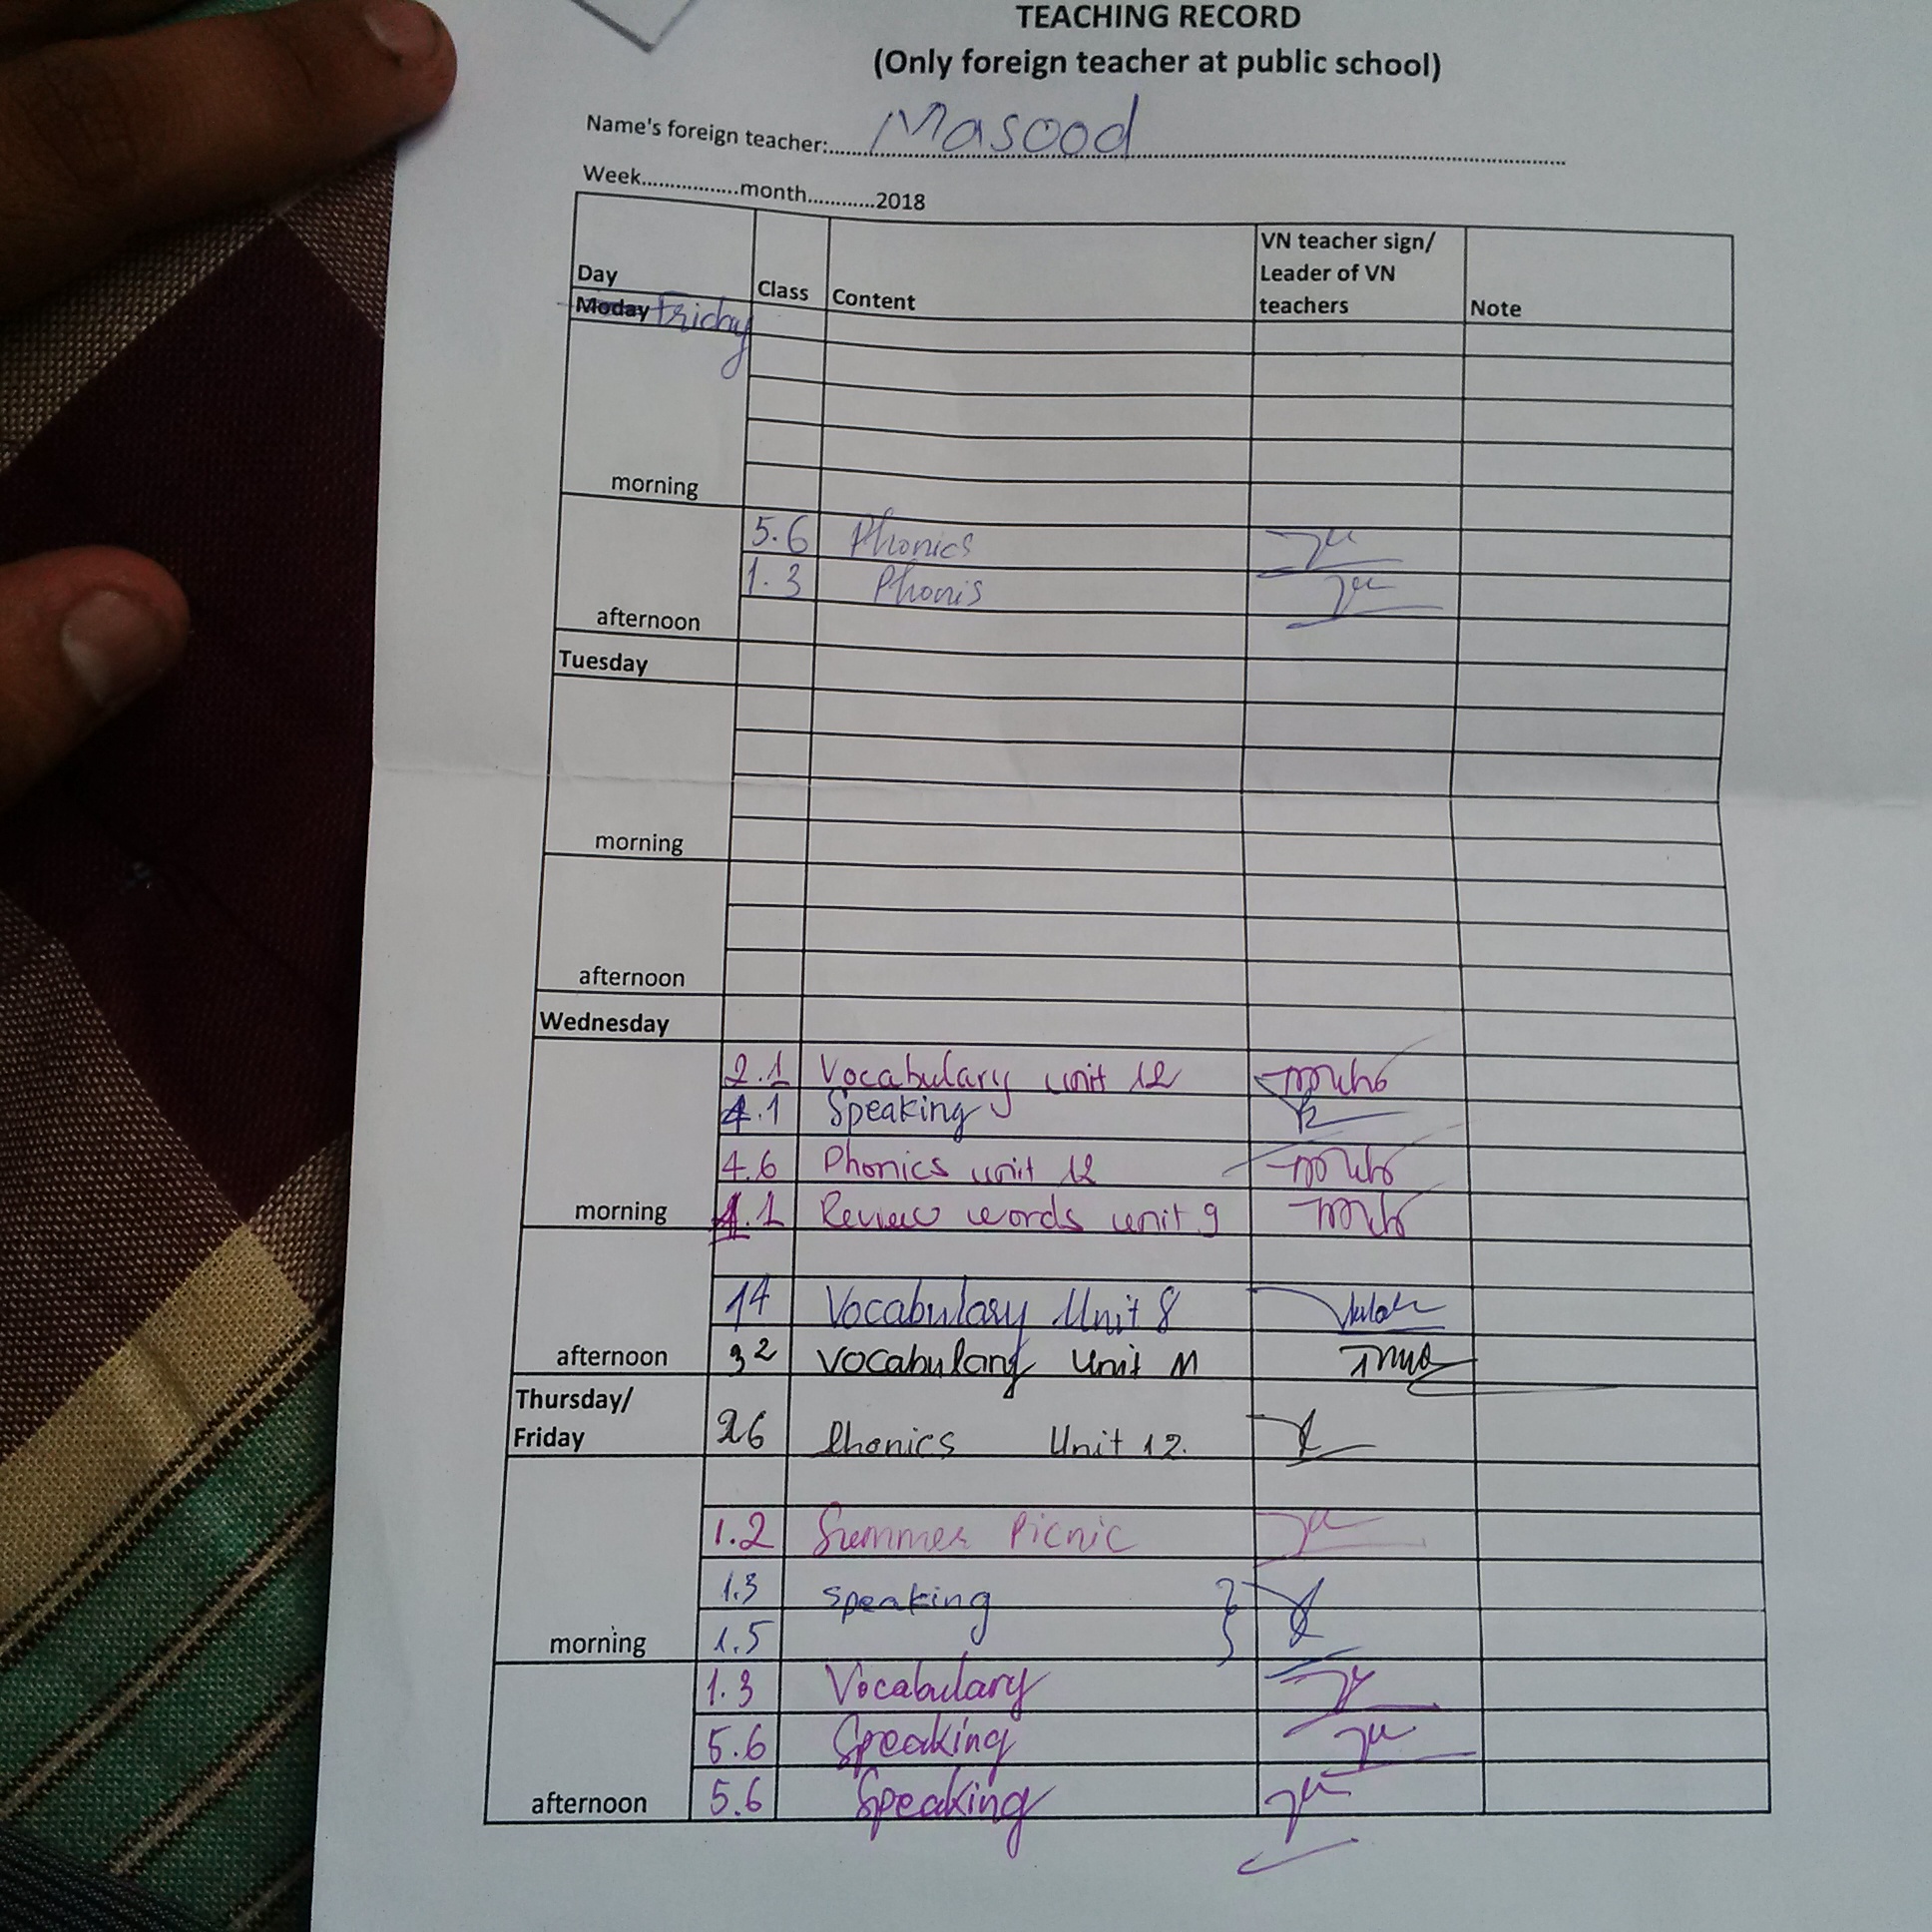 TEACHING RECORD
(Only foreign teacher at public school)
Name's foreign teacher:..........Masood..........
Week.................month............2018
Day Class Content VN teacher sign/ Leader of VN teachers Note
Moday Friday
morning
5.6 Phonics
1.3 Phonis
afternoon
Tuesday
morning
afternoon
Wednesday
2.1 Vocabulary unit 12
4.1 Speaking
4.6 Phonics unit 12
1.1 Review words unit 9
morning
14 Vocabulary Unit 8
afternoon 32 Vocabulary Unit 11
Thursday/
Friday 26 Phonics Unit 12.
1.2 Summer Picnic
1.3 speaking
morning 1.5
1.3 Vocabulary
5.6 Speaking
afternoon 5.6 Speaking